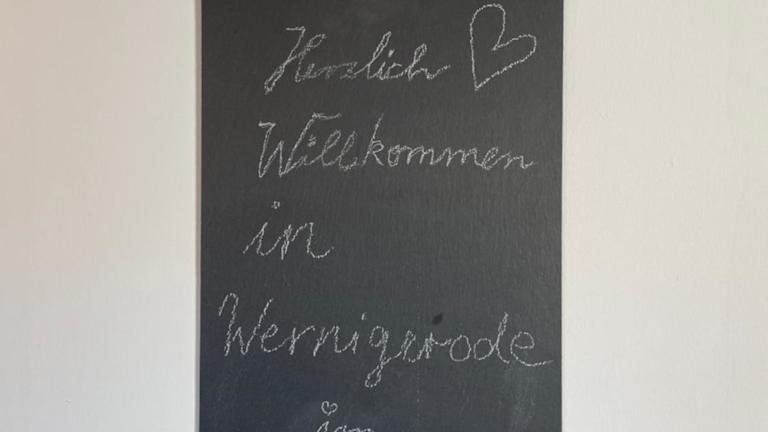 Herzlich
Willkommen
in
Wernigerode